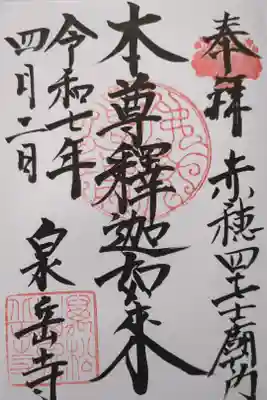 奉拝 赤穂四十七士廟所
本尊釋迦如来
令和七年
四月二日
泉岳寺